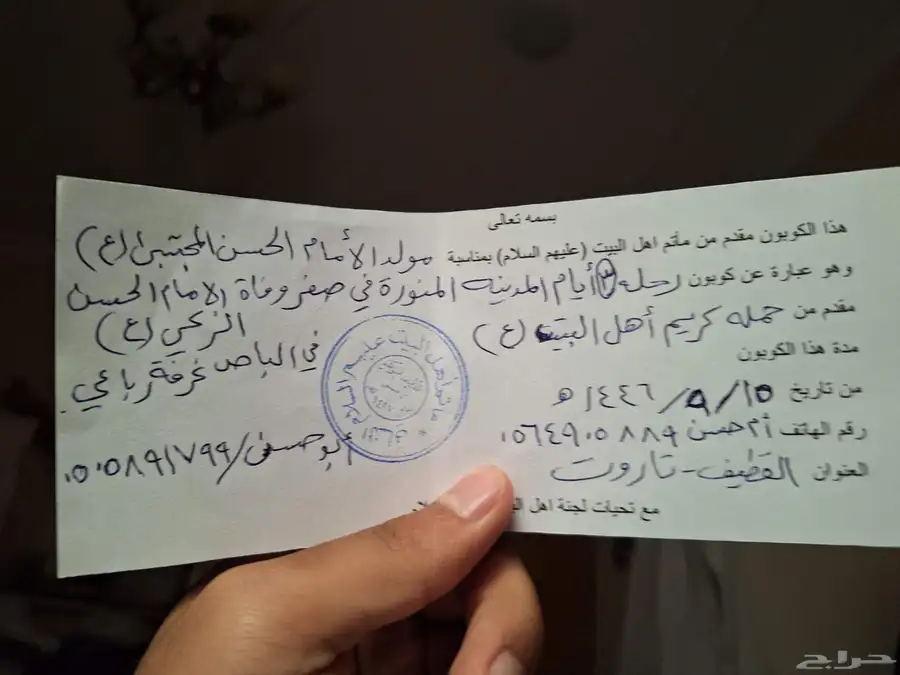 بسمه تعالى
هذا الكوبون مقدم من مأتم اهل البيت (عليهم السلام) بمناسبة مولد الأمام الحسن المجتبى (ع)
وهو عبارة عن كوبون رحلة ٣ أيام المدينه المنورة في صفر وفاة الامام الحسن الزكي (ع)
مقدم من حمله كريم أهل البيت (ع) في الباص غرفة رباعي.
مدة هذا الكوبون
من تاريخ ١٥/٩/١٤٤٦ هـ
رقم الهاتف أم حسن ٠٥٦٤٩٠٥٨٨٩ أبو حسن/٠٥٠٥٨٩١٧٩٩
العنوان القطيف - تاروت
مع تحيات لجنة اهل
مأتم أهل البيت عليهم السلام
حراج